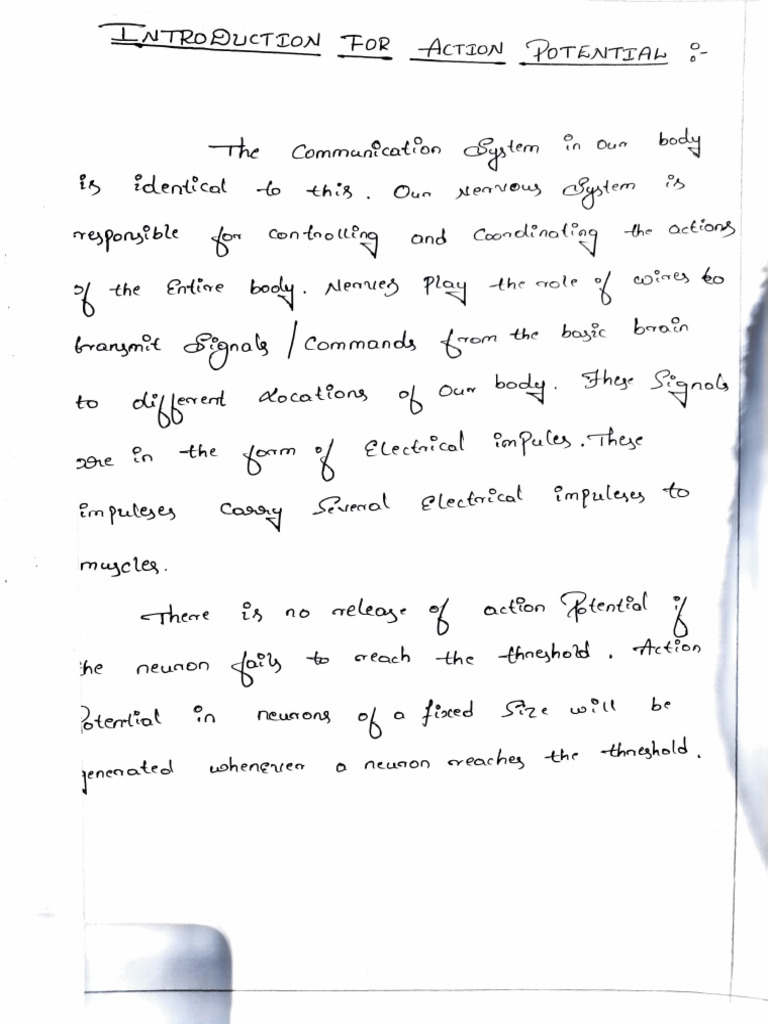 INTRODUCTION FOR ACTION POTENTIAL :-
The Communication System in our body
is identical to this. Our Nervous System is
responsible for controlling and Coordinating the actions
of the Entire body. Nerves Play the role of wires to
transmit Signals / Commands from the basic brain
to different Locations of Our body. These Signals
are in the form of Electrical impules. These
impuleses Carry Several Electrical impuleses to
muscles.
There is no release of action Potential if
the neuron fails to reach the threshold. Action
Potential in neurons of a fixed Size will be
generated whenever a neuron reaches the threshold.